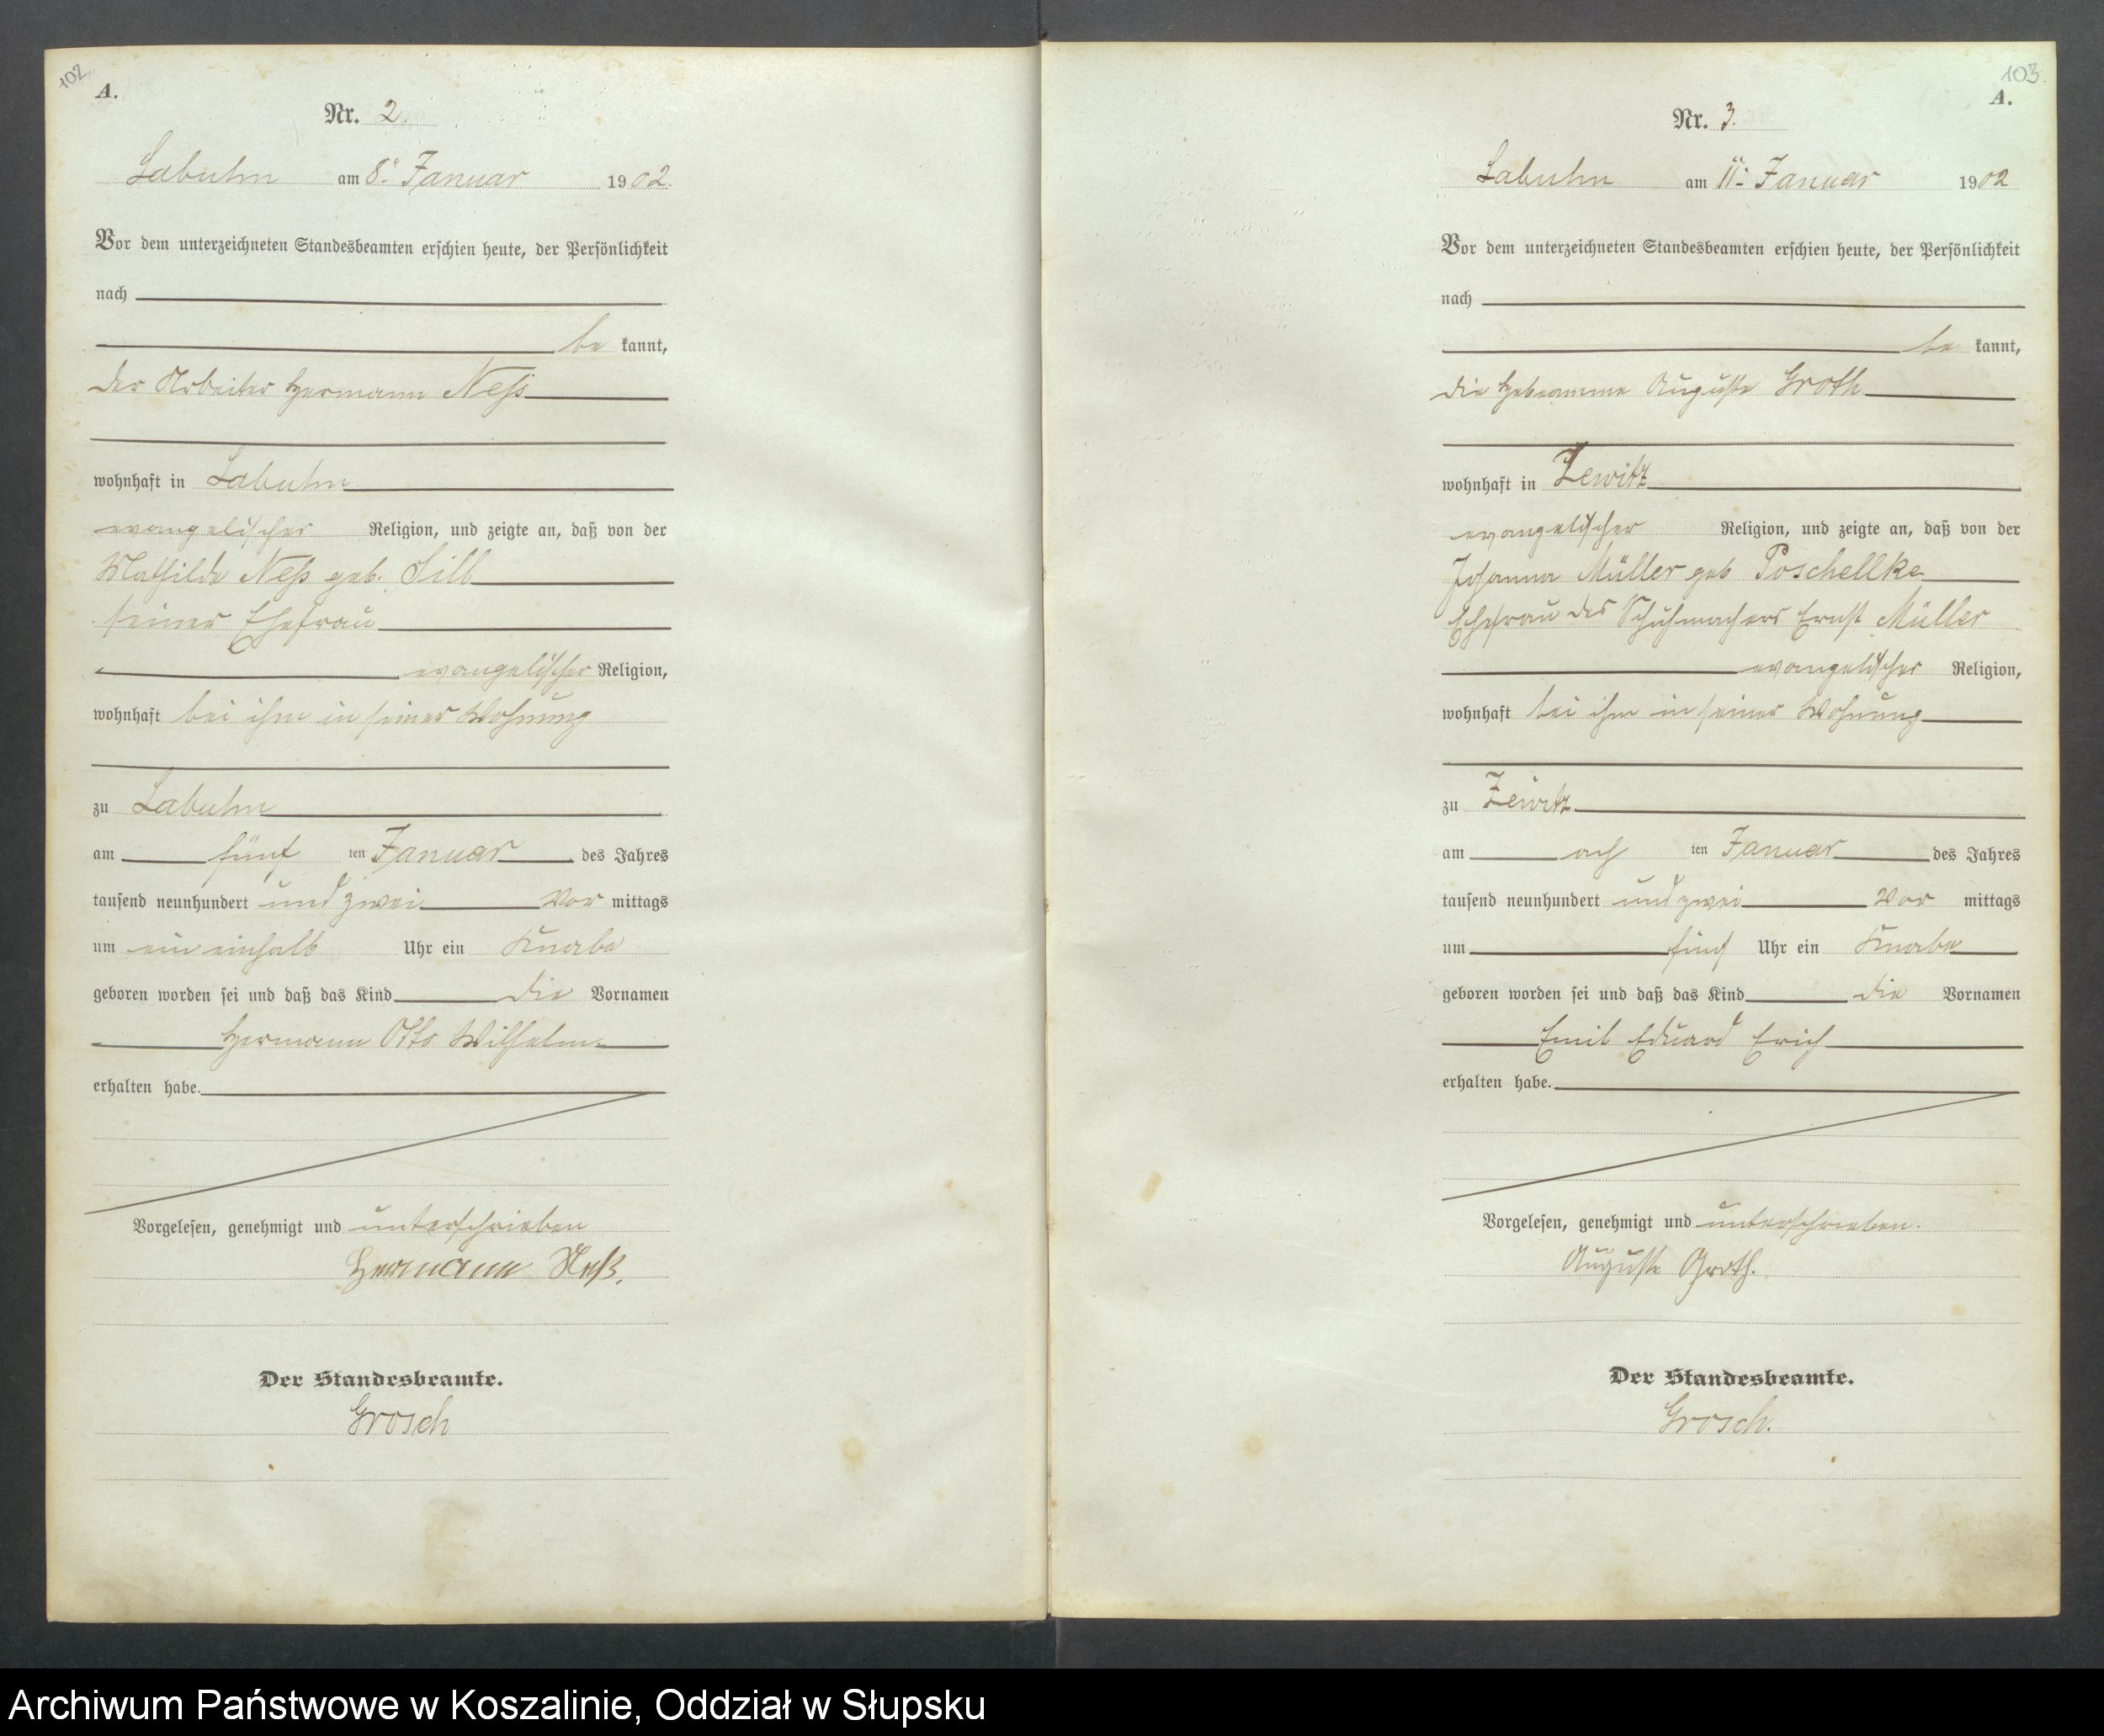 102
A.
Nr. 2.
Labuhn am 8. Januar 1902.
Vor dem unterzeichneten Standesbeamten erschien heute, der Persönlichkeit
nach
be kannt,
der Arbeiter Hermann Neß
wohnhaft in Labuhn
evangelischer Religion, und zeigte an, daß von der
Mathilde Neß geb. Sill
seiner Ehefrau
evangelischer Religion,
wohnhaft bei ihm in seiner Wohnung
zu Labuhn
am fünf ten Januar des Jahres
tausend neunhundert und zwei Vor mittags
um ein einhalb Uhr ein Knabe
geboren worden sei und daß das Kind die Vornamen
Hermann Otto Wilhelm
erhalten habe.
Vorgelesen, genehmigt und unterschrieben
Hermann Neß.
Der Standesbeamte.
Grosch
103.
A.
Nr. 3.
Labuhn am 11. Januar 1902
Vor dem unterzeichneten Standesbeamten erschien heute, der Persönlichkeit
nach
be kannt,
die Hebeamme Auguste Groth
wohnhaft in Zewitz
evangelischer Religion, und zeigte an, daß von der
Johanna Müller geb Poschellke
Ehefrau des Schuhmachers Ernst Müller
evangelischer Religion,
wohnhaft bei ihm in seiner Wohnung
zu Zewitz
am ach ten Januar des Jahres
tausend neunhundert und zwei Vor mittags
um fünf Uhr ein Knabe
geboren worden sei und daß das Kind die Vornamen
Emil Eduard Erich
erhalten habe.
Vorgelesen, genehmigt und unterschrieben.
Auguste Groth.
Der Standesbeamte.
Grosch.
Archiwum Państwowe w Koszalinie, Oddział w Słupsku